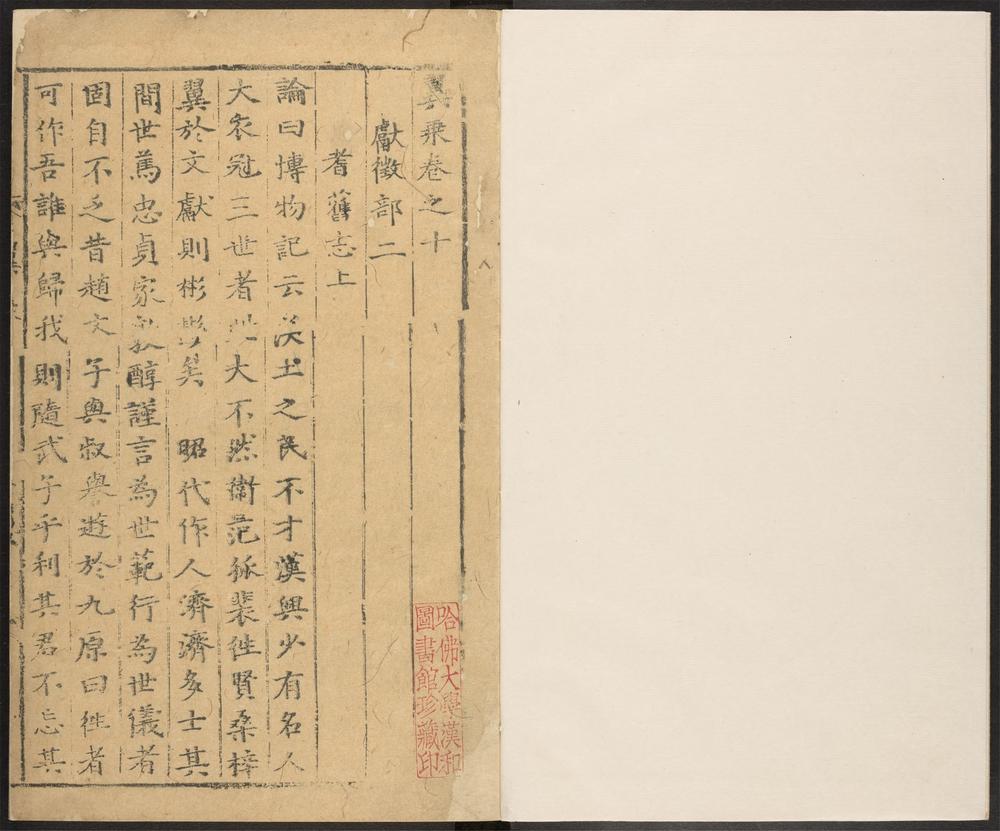 冀乗卷之十
獻徴部二
耆舊志上
論曰博物記云漢土之民不才漢興少有名人
大衣冠三世者此大不然衞范狐裴徃賢桑梓
翼於文獻則彬彬矣　昭代作人濟濟多士其
間世篤忠貞家敦醇謹言為世範行為世儀者
固自不乏昔趙文子與叔譽遊於九原曰徃者
可作吾誰與歸我則隨武子乎利其君不忘其
哈佛大學漢和
圖書館珍藏印